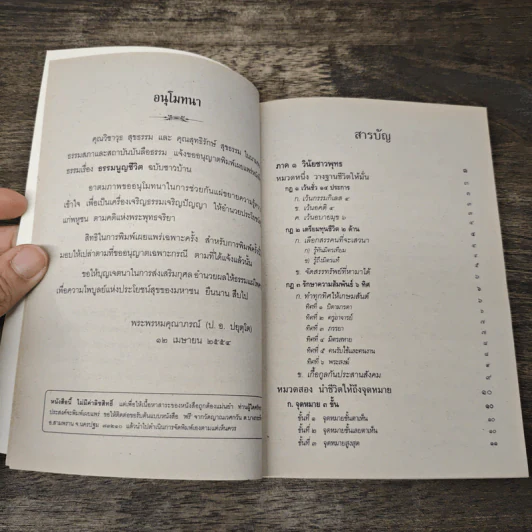 อนุโมทนา
คุณวิชาวุธ สุขธรรม และ คุณสุทธิรักษ์ สุขธรรม
ธรรมสภาและสถาบันบันลือธรรม แจ้งขออนุญาตพิมพ์เผยแพร่หนังสือ
ธรรมเรื่อง ธรรมนูญชีวิต ฉบับชาวบ้าน
อาตมภาพขออนุโมทนาในการช่วยกันแผ่ขยายความรู้ความ
เข้าใจ เพื่อเป็นเครื่องเจริญธรรมเจริญปัญญา ให้อำนวยประโยชน์
แก่พหูชน ตามคติแห่งพระพุทธจริยา
สิทธิในการพิมพ์เผยแพร่เฉพาะครั้ง สำหรับการพิมพ์ครั้งนี้
มอบให้เปล่าตามที่ขออนุญาตเฉพาะกรณี ตามที่ได้แจ้งแล้วนั้น
ขอให้บุญเจตนาในการส่งเสริมกุศล อำนวยผลให้ธรรม
เพื่อความไพบูลย์แห่งประโยชน์สุขของมหาชน ยืนนาน สืบไป
พระพรหมคุณาภรณ์ (ป. อ. ปยุตฺโต)
๑๒ เมษายน ๒๕๕๔
หนังสือนี้ ไม่มีค่าลิขสิทธิ์ แต่เพื่อให้เนื้อหาสาระของหนังสือถูกต้องแม่นยำ ท่านผู้ใดศรัทธา
ประสงค์จะพิมพ์เผยแพร่ ขอให้ติดต่อขอรับต้นแบบหนังสือ ฟรี จากวัดญาณเวศกวัน ต.บางกระทึก
อ.สามพราน จ.นครปฐม ๗๓๒๑๐ แล้วนำไปดำเนินการจัดพิมพ์เองตามแต่เห็นควร
สารบัญ
ภาค ๑ วินัยชาวพุทธ ๑
หมวดหนึ่ง วางฐานชีวิตให้มั่น
กฎ ๑ เว้นชั่ว ๑๔ ประการ
ก. เว้นกรรมกิเลส ๔
ข. เว้นอคติ ๔
ค. เว้นอบายมุข ๖
กฎ ๒ เตรียมทุนชีวิต ๒ ด้าน
ก. เลือกสรรคนที่จะเสวนา
๑) รู้ทันมิตรเทียม
๒) รู้ถึงมิตรแท้
ข. จัดสรรทรัพย์ที่หามาได้
กฎ ๓ รักษาความสัมพันธ์ ๖ ทิศ
ก. ทำทุกทิศให้เกษมสันต์
ทิศที่ ๑ บิดามารดา
ทิศที่ ๒ ครูอาจารย์
ทิศที่ ๓ ภรรยา
ทิศที่ ๔ มิตรสหาย
ทิศที่ ๕ คนรับใช้และคนงาน
ทิศที่ ๖ พระสงฆ์
ข. เกื้อกูลกันประสานสังคม ๙
หมวดสอง นำชีวิตให้ถึงจุดหมาย ๑๐
ก. จุดหมาย ๓ ขั้น ๑๐
ขั้นที่ ๑ จุดหมายขั้นตาเห็น ๑๐
ขั้นที่ ๒ จุดหมายขั้นเลยตาเห็น ๑๐
ขั้นที่ ๓ จุดหมายสูงสุด ๑๑